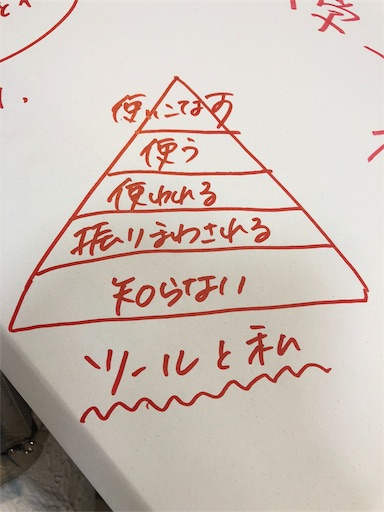 使いこなす
使う
使われる
振りまわされる
知らない
ツールと私